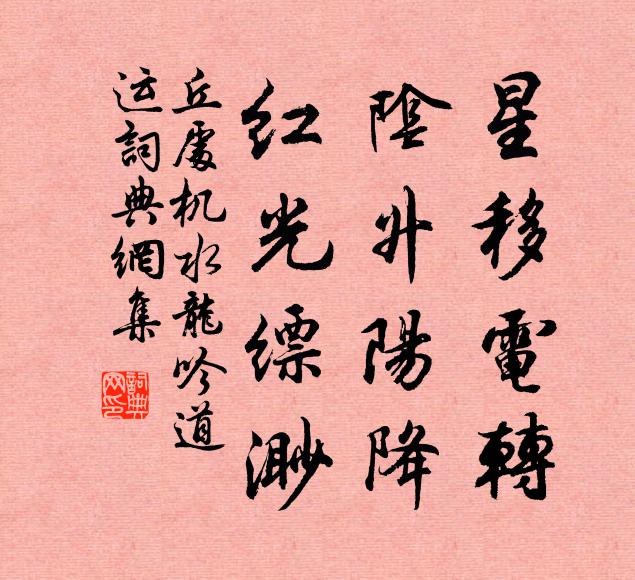 星移電轉
陰升陽降
紅光縹渺
丘處机水龍吟道
运詞典網集
詞典网印